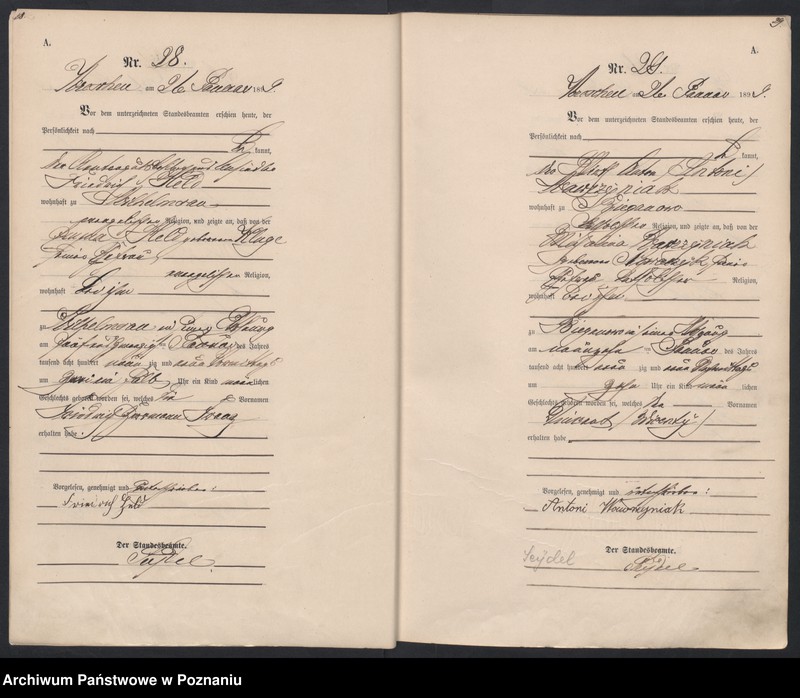 A.
Nr. 28.
am 26 Januar 1899.
Vor dem unterzeichneten Standesbeamten erschien heute, der
Persönlichkeit nach
kannt,
der
Friedrich Held
wohnhaft zu Wilhelmsau
evangelischer Religion, und zeigte an, daß von der
Held geborenen Kluge
seiner Ehefrau
evangelischer Religion,
wohnhaft bei ihm
zu Wilhelmsau in seiner Wohnung
am fünf und zwanzigsten Januar des Jahres
tausend acht hundert neun zig und neun Vormittags
um Uhr ein Kind männlichen
Geschlechts geboren worden sei, welches die Vornamen
Hermann
erhalten habe.
Vorgelesen, genehmigt und unterschrieben:
Friedrich Held
Der Standesbeamte.
Seydel.
29
A.
Nr. 29.
am 26 Januar 1899.
Vor dem unterzeichneten Standesbeamten erschien heute, der
Persönlichkeit nach
kannt,
der Anton (Antoni)
Wawrzyniak
wohnhaft zu Bieganowo
katholischer Religion, und zeigte an, daß von der
Wawrzyniak
geborenen seiner
Ehefrau katholischer Religion,
wohnhaft bei ihm
zu Bieganowo in seiner Wohnung
am neunzehn ten Januar des Jahres
tausend acht hundert neun zig und neun Nachmittags
um zehn Uhr ein Kind männ lichen
Geschlechts geboren worden sei, welches den Vornamen
Vincent (Wincenty)
erhalten habe
Vorgelesen, genehmigt und unterschrieben:
Antoni Wawrzyniak
Der Standesbeamte.
Seydel
Seydel
Archiwum Państwowe w Poznaniu